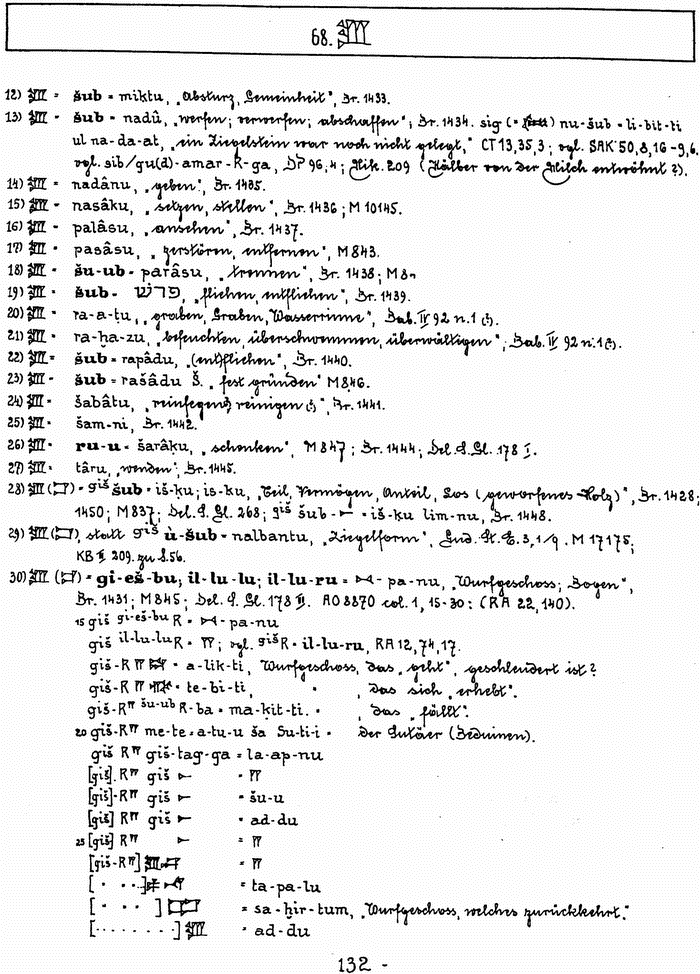 68. 𒊒
12) 𒊒 = šub = miktu, „Absturz, Gemeinheit“, Br. 1433.
13) 𒊒 = šub = nadû, „werfen; verwerfen; abschaffen“; Br. 1434. sig (= ) nu-šub = li-bit-ti
ul na-da-at, „ein Ziegelstein war noch nicht gelegt,“ CT 13, 35, 3; vgl. SAK 50, 8, 16 - 9, 6.
vgl. sib/gu(d)-amar-R-ga, DP 96, 4; Nik. 209 (Kälber von der Milch entwöhnt?).
14) 𒊒 = nadânu, „geben“, Br. 1435.
15) 𒊒 = nasâku, „setzen, stellen“, Br. 1436; M 10145.
16) 𒊒 = palâsu, „ansehen“, Br. 1437.
17) 𒊒 = pasâsu, „zerstören, entfernen“, M 843.
18) 𒊒 = šu-ub = parâsu, „trennen“, Br. 1438; M
19) 𒊒 = šub = פרש, „fliehen, entfliehen“, Br. 1439.
20) 𒊒 = ra-a-ṭu, „graben, Graben, Wasserrinne“, Bab. IV 92 n. 1 (?).
21) 𒊒 = ra-ḫa-zu, „befeuchten, überschwemmen, überwältigen“; Bab. IV 92 n. 1 (?).
22) 𒊒 = šub = rapâdu, „(ent)fliehen“, Br. 1440.
23) 𒊒 = šub = rašâdu Š. „fest gründen“ M 846.
24) 𒊒 = šabâtu, „reinfegen, reinigen (?)“, Br. 1441.
25) 𒊒 = šam-ni, Br. 1442.
26) 𒊒 = ru-u = šarâḳu, „schenken“, M 847; Br. 1444; Del. S. Gl. 178 I.
27) 𒊒 = târu, „wenden“; Br. 1445.
28) 𒊒 (𒆸) = giš šub = iš-ḳu; is-ku, „Teil, Vermögen, Anteil, Los (geworfenes Holz)“, Br. 1428;
1450; M 837; Del. S. Gl. 268; giš šub - 𒀸 = iš-ḳu lim-nu, Br. 1448.
29) 𒊒 (𒆸), statt giš ù-šub = nalbantu, „Ziegelform“, Gud. St. E. 3, 1/9. M 17175;
KB II 209. zu S. 56.
30) 𒊒 (𒆸) = gi-eš-bu; il-lu-lu; il-lu-ru = 𒋾- pa-nu, „Wurfgeschoss; Bogen“,
Br. 1431; M 845; Del. S. Gl. 178 II. AO 8870 col. 1, 15-30: (RA 22, 140).
15 giš gi-eš-bu R = 𒋾- pa-nu
giš il-lu-lu R = 𒐊; vgl. giš R = il-lu-ru, RA 12, 74, 17.
giš-R 𒐊 = a-lik-ti, Wurfgeschoss, das „geht“, geschleudert ist?
giš-R 𒐊 = te-bi-ti, " , das sich „erhebt“.
giš-R 𒐊 šu-ub R-ba = ma-ḳit-ti. " , das „fällt“.
20 giš-R 𒐊 me-te = a-tu-u ša Su-ti-i = der Sutäer (Beduinen).
giš R 𒐊 giš-tag-ga = la-ap-nu
[giš]. R 𒐊 giš 𒀸 = 𒐊
[giš]-R 𒐊 giš 𒀸 = šu-u
[giš] R 𒐊 giš 𒀸 = ad-du
25 [giš] R 𒐊 𒀸 = 𒐊
[giš-R 𒐊] 𒊒 = 𒐊
[ · · · ] = ta-pa-lu
[ · · · ] = sa-ḫir-tum, „Wurfgeschoss, welches zurückkehrt.“
[ · · · · · · · · ] 𒊒 = ad-du
132 -